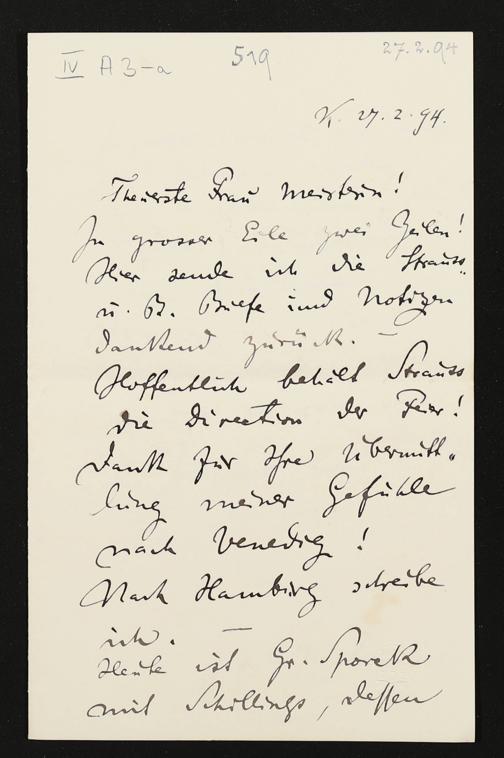 IV A 3-a 519 27.2.94
K. 27.2.94.
Theuerste Frau Meisterin!
In grosser Eile zwei Zeilen!
Hier sende ich die Strauss-
u. B. Briefe und Notizen
dankend zurück. —
Hoffentlich behält Strauss
die Direction der Feier!
Dank für Ihre Übermitt-
lung meiner Gefühle
nach Venedig!
Nach Hamburg schreibe
ich. —
Heute ist Gr. Sporck
mit Schillings, dessen